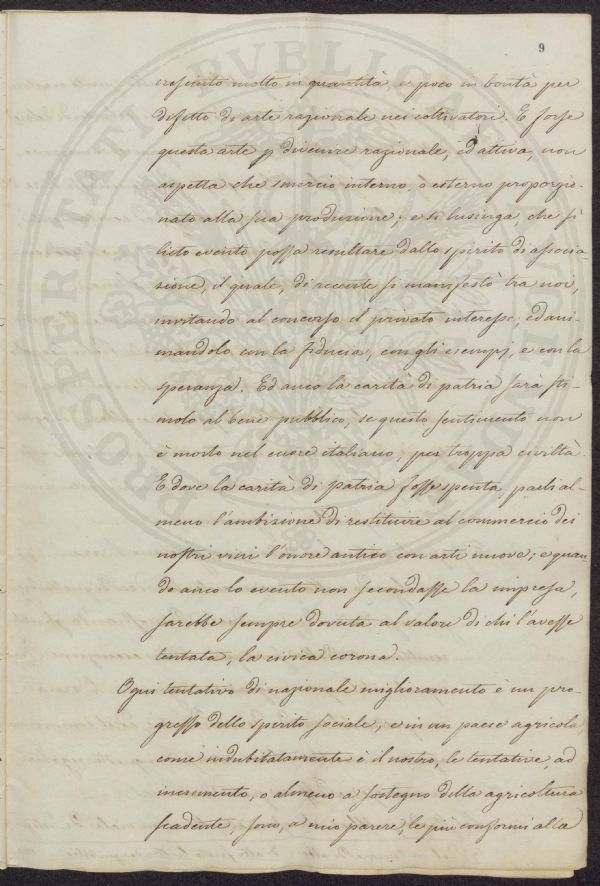 9
cresciuto molto in quantità, e poco in bontà per
difetto di arte razionale nei coltivatori. E forse
questa arte p divenire razionale, ed attiva, non
aspetta che smercio interno, o esterno proporzio-
nato alla sua produzione; e si lusinga, che sì
lieto evento possa resultare dallo spirito di associa-
zione, il quale, di recente si manifestò tra noi,
invitando al concorso il privato interesse, ed ani-
mandolo con la fiducia, con gli esempj, e con la
speranza. Ed anco la carità di patria sarà sti-
molo al bene pubblico, se questo sentimento non
è morto nel cuore italiano, per troppa civiltà.
E dove la carità di patria fosse spenta, parli al-
meno l'ambizione di restituire al commercio dei
nostri vini l'onore antico con arti nuove; e quan-
do anco lo evento non secondasse la impresa,
sarebbe sempre dovuta al valore di chi l'avesse
tentata, la civica corona.
Ogni tentativo di nazionale miglioramento è un pro-
gresso dello spirito sociale; e in un paese agricola,
come indubitatamente è il nostro, le tentative, ad
incremento, o almeno a sostegno della agricoltura
scadente, sono, a mio parere, le più conformi alla
PROSPERITATI PVBLICAE